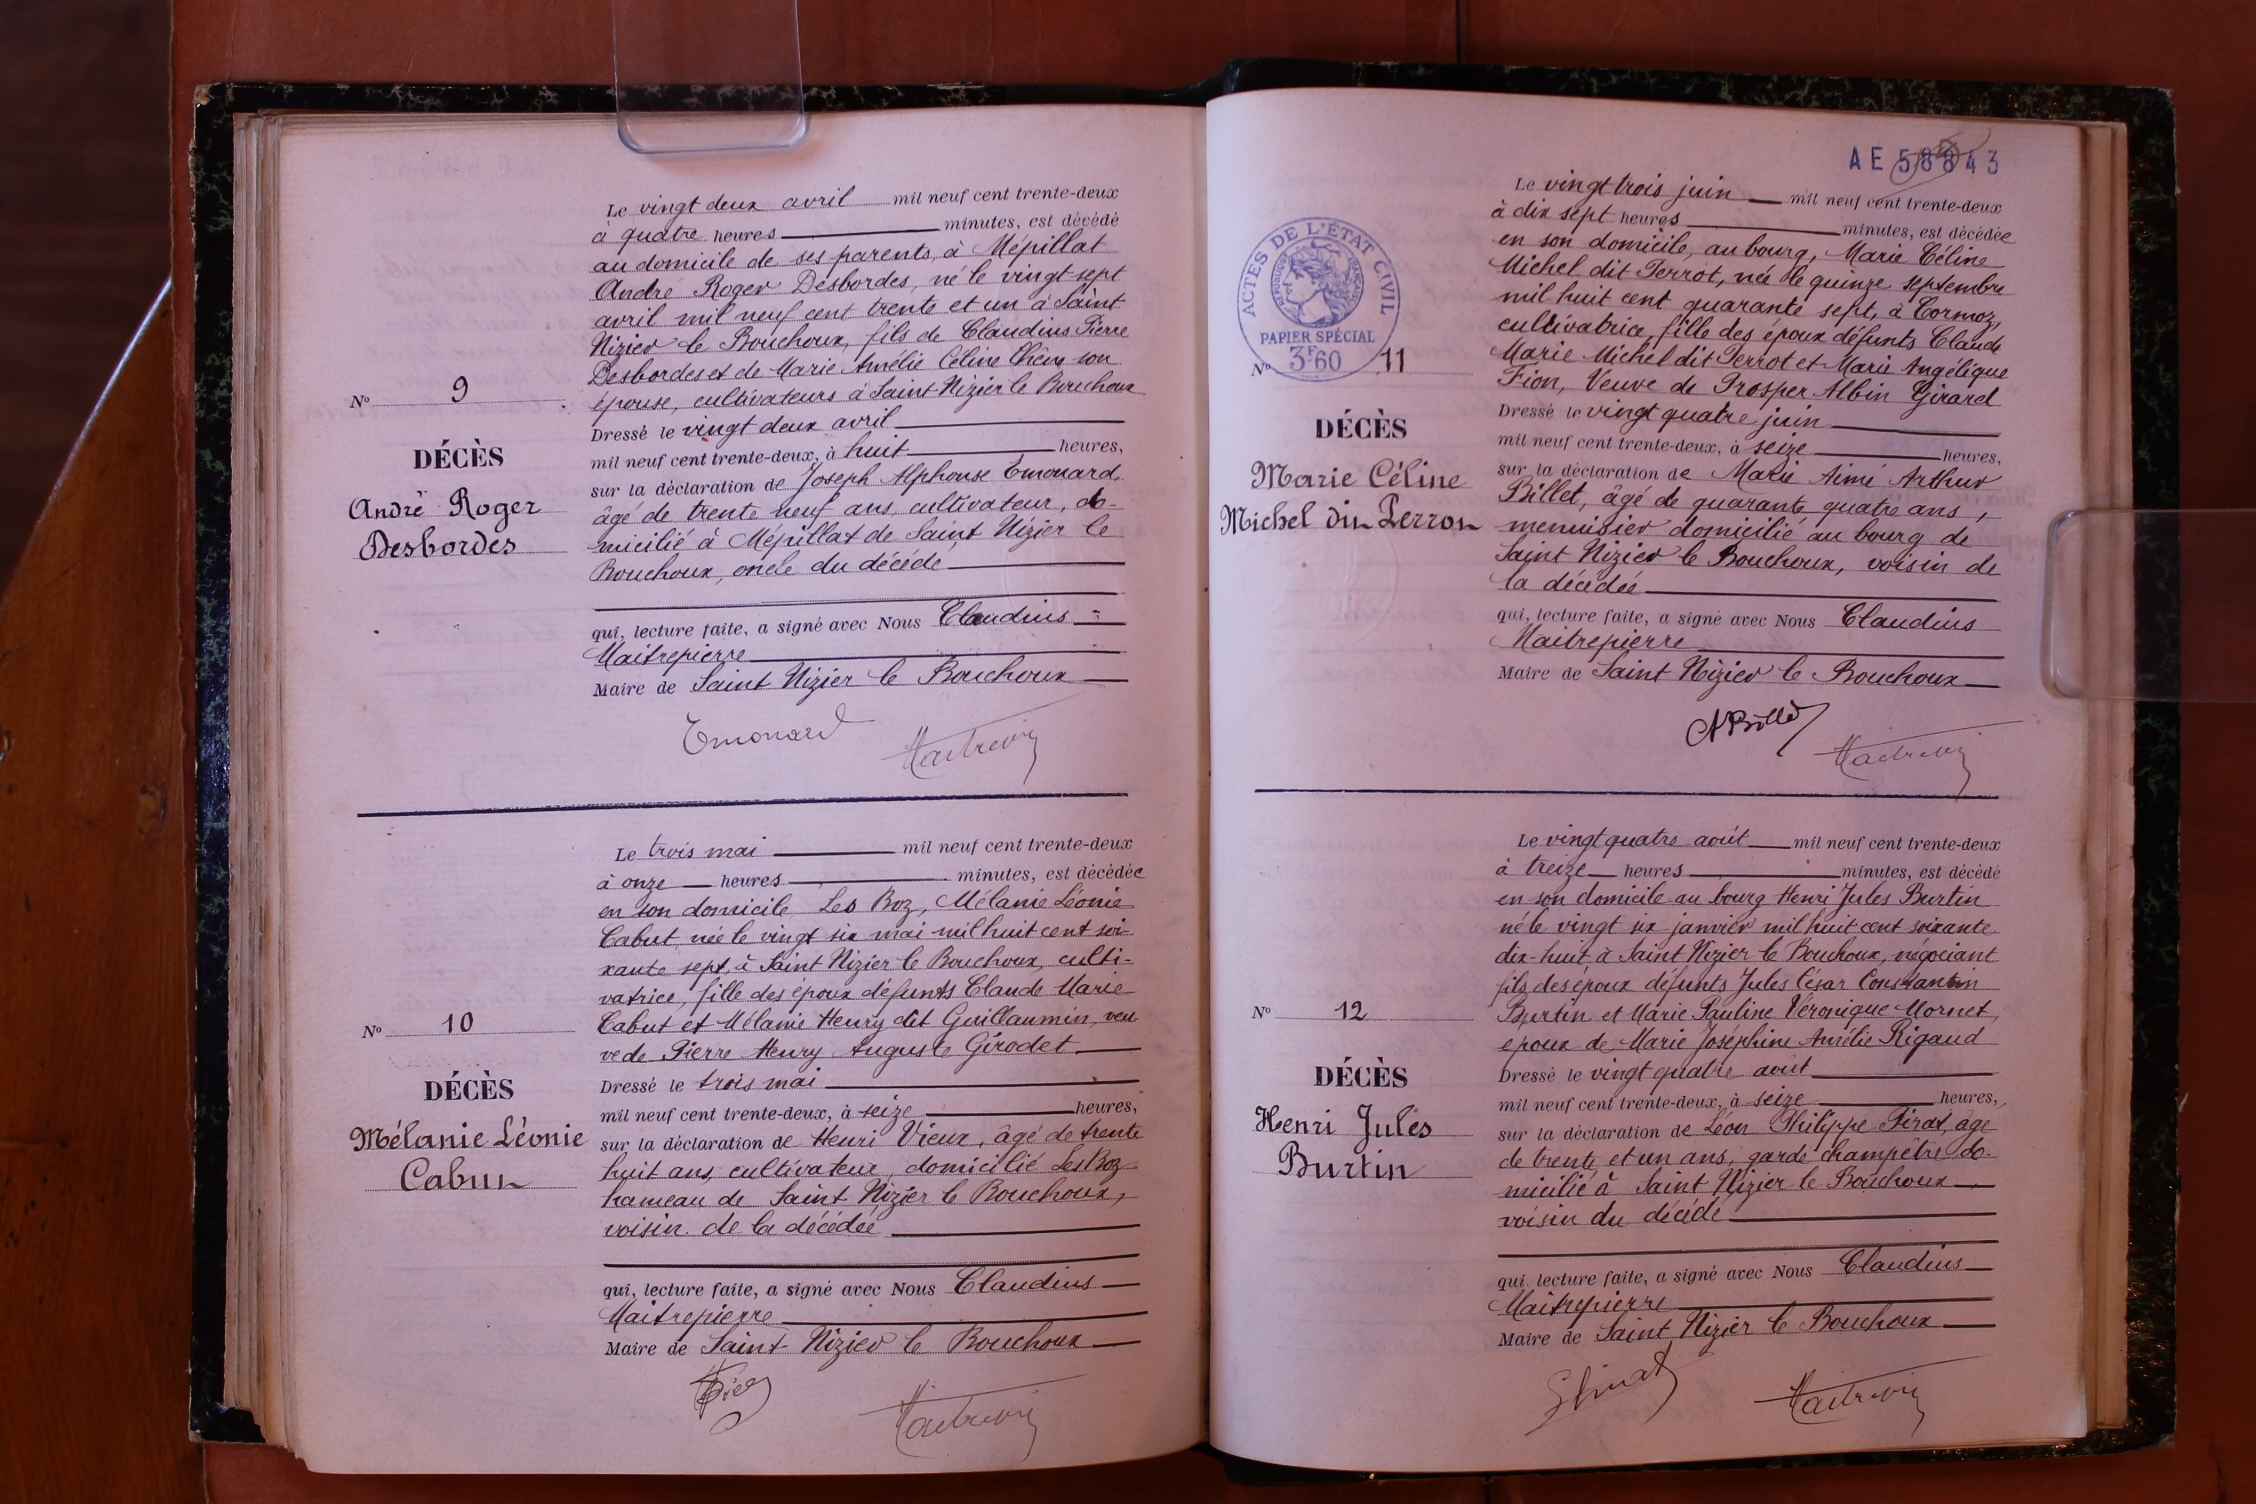 Le vingt deux avril mil neuf cent trente-deux
à quatre heures minutes, est décédé
au domicile de ses parents, à Mépillat
André Roger Desbordes, né le vingt sept
avril mil neuf cent trente et un à Saint
Nizier le Bouchoux, fils de Claudius Pierre
Desbordes et de Marie Amélie Céline son
épouse, cultivateurs à Saint Nizier le Bouchoux
Nº 9
DÉCÈS
André Roger
Desbordes
Dressé le vingt deux avril
mil neuf cent trente-deux, à huit heures,
sur la déclaration de Joseph Alphonse Emonard,
âgé de trente neuf ans, cultivateur, do-
micilié à Mépillat de Saint Nizier le
Bouchoux, oncle du décédé
qui, lecture faite, a signé avec Nous Claudius =
Maitrepierre
Maire de Saint Nizier le Bouchoux
Emonard
Le trois mai mil neuf cent trente-deux
à onze heures minutes, est décédée
en son domicile Les Boz, Mélanie Léonie
Cabut née le vingt six mai mil huit cent soi-
xante sept, à Saint Nizier le Bouchoux, culti-
vatrice, fille des époux défunts Claude Marie
Cabut et Mélanie Henry dit Guillaumin, veu
ve de Pierre Henry Auguste Girodet
Nº 10
DÉCÈS
Mélanie Léonie
Cabut
Dressé le trois mai
mil neuf cent trente-deux, à seize heures,
sur la déclaration de Henri Vieux, âgé de trente
huit ans, cultivateur, domicilié Les Boz
hameau de Saint Nizier le Bouchoux,
voisin de la décédée
qui, lecture faite, a signé avec Nous Claudius
Maitrepierre
Maire de Saint Nizier le Bouchoux
AE 58843
ACTES DE L'ÉTAT CIVIL
RÉPUBLIQUE FRANÇAISE
PAPIER SPÉCIAL
3F60
Le vingt trois juin mil neuf cent trente-deux
à dix sept heures minutes, est décédée
en son domicile, au bourg, Marie Céline
Michel dit Perrot, née le quinze septembre
mil huit cent quarante sept, à Cormoz,
cultivatrice, fille des époux défunts Claude
Marie Michel dit Perrot et Marie Angélique
Fion, Veuve de Prosper Albin Girard
Nº 11
DÉCÈS
Marie Céline
Michel dit Perrot
Dressé le vingt quatre juin
mil neuf cent trente-deux, à seize heures,
sur la déclaration de Marie Aimé Arthur
Billet, âgé de quarante quatre ans,
menuisier domicilié au bourg de
Saint Nizier le Bouchoux, voisin de
la décédée
qui, lecture faite, a signé avec Nous Claudius
Maitrepierre
Maire de Saint Nizier le Bouchoux
ABillet
Le vingt quatre août mil neuf cent trente-deux
à treize heures minutes, est décédé
en son domicile au bourg Henri Jules Burtin
né le vingt six janvier mil huit cent soixante
dix-huit à Saint Nizier le Bouchoux, négociant
fils des époux défunts Jules César Constantin
Burtin et Marie Pauline Véronique Mornet,
époux de Marie Joséphine Amélie Rigaud
Nº 12
DÉCÈS
Henri Jules
Burtin
Dressé le vingt quatre août
mil neuf cent trente-deux, à seize heures,
sur la déclaration de Léon Philippe Pirat, âgé
de trente et un ans, garde champêtre do-
micilié à Saint Nizier le Bouchoux
voisin du décédé
qui, lecture faite, a signé avec Nous Claudius
Maitrepierre
Maire de Saint Nizier le Bouchoux